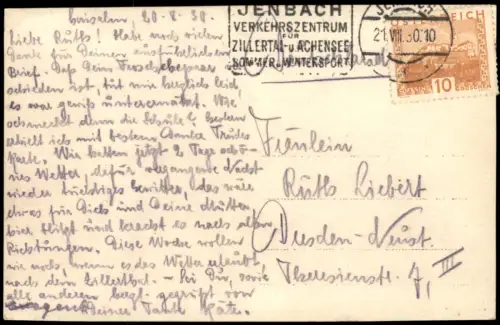 20.8.30.
Liebe Ruth! Habe noch vielen
Dank für Deinen ausführlichen
Brief. Daß Dein
schieden ist, tut mir
es war
schmeckt denn die Schule?
erhielt ich mit bestem Danke Trudes
Karte. Wir hatten jetzt 2 Tage schö-
nes Wetter, dafür vergangene Nacht
wieder tüchtiges Gewitter, das wäre
etwas für Dich und Deine Mutter
hier blitzt und kracht es nach allen
Richtungen. Diese Woche wollen
wir noch, wenn es das Wetter erlaubt
nach dem Zillertal. - Sei Du, sowie
alle anderen herzl. gegrüßt von
Deiner Tante Käte.
JENBACH
VERKEHRSZENTRUM
FÜR
ZILLERTAL-u ACHENSEE
SOMMER-u. WINTERSPORT
21.VIII.30.10
ÖSTERREICH
10
Fräulein
Ruth Liebert
Dresden-Neust.
Theresienstr. 7, III